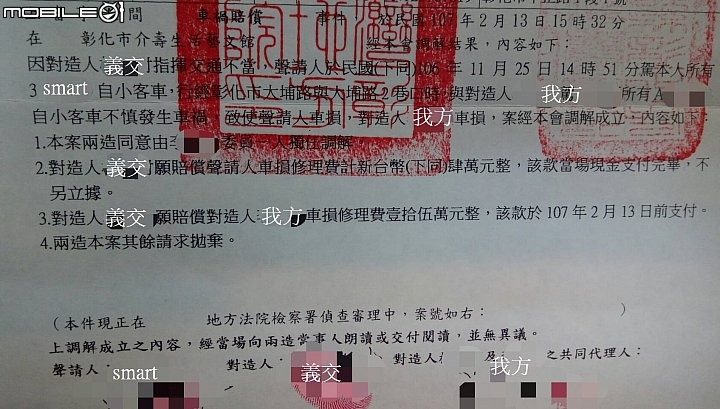 MOBILE01
間 車禍賠償 事件 於民國107年2月13日15時32分
在 彰化市介壽生活藝文館 經本會調解結果,內容如下:
因對造人 義交 指揮交通不當,聲請人於民國(下同)106年11月25日14時51分駕本人所有
3 smart 自小客車,行經彰化市大埔路與大埔路2巷口時,與對造人 我方 所有A
自小客車不慎發生車禍,致使聲請人車損,對造人 我方 車損,案經本會調解成立,內容如下:
1.本案兩造同意由 委員一人獨任調解。
2.對造人 義交 願賠償聲請人車損修理費計新台幣(下同)肆萬元整,該款當場現金支付完畢,不
另立據。
3.對造人 義交 願賠償對造人 我方 車損修理費壹拾伍萬元整,該款於107年2月13日前支付。
4.兩造本案其餘請求拋棄。
(本件現正在 地方法院檢察署偵查審理中,案號如右: )
上調解成立之內容,經當場向兩造當事人朗讀或交付閱讀,並無異議。
聲請人: smart 對造人: 義交 對造人 我方 及 之共同代理人: